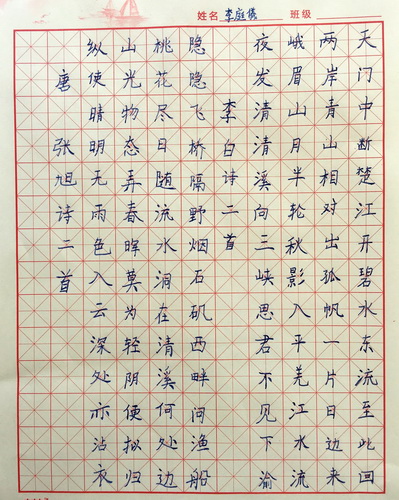 姓名 李庭 班级
天门中断楚江开碧水东流至此回
两岸青山相对出孤帆一片日边来
峨眉山月半轮秋影入平羌江水流
夜发清清溪向三峡思君不见下渝
李白诗二首
隐隐飞桥隔野烟石矶西畔问渔船
桃花尽日随流水洞在清溪何处边
山光物态弄春晖莫为轻阴便拟归
纵使晴明无雨色入云深处亦沾衣
唐 张旭诗二首